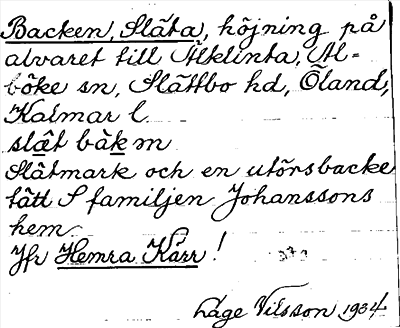 Backen, Släta, höjning på
alvaret till Äleklinta, Al-
böke sn, Slättbo hd, Öland,
Kalmar l.
slæt bàkɱ
Slätmark och en utörsbacke
tätt S familjen Johanssons
hem.
Jfr Hemra Kärr!
Låge Nilsson 1934